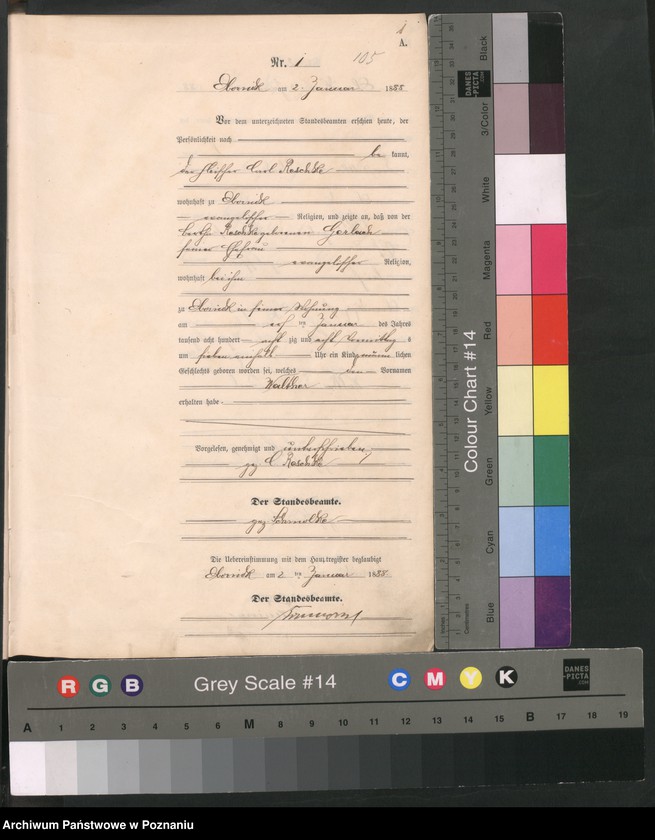 1
A.
Nr. 1 105
Obornick am 2. Januar 1888
Vor dem unterzeichneten Standesbeamten erschien heute, der
Persönlichkeit nach
be kannt,
der Fleischer Carl Raschke
wohnhaft zu Obornick
evangelischer Religion, und zeigte an, daß von der
Bertha Raschke geborenen Gerlach
seiner Ehefrau
evangelischer Religion,
wohnhaft bei ihm
zu Obornick in seiner Wohnung
am ersten Januar des Jahres
tausend acht hundert acht zig und acht Vormittag s
um sieben einhalb Uhr ein Kind männ lichen
Geschlechts geboren worden sei, welches den Vornamen
Walther
erhalten habe.
Vorgelesen, genehmigt und unterschrieben
gez C Raschke
Der Standesbeamte.
gez
Die Uebereinstimmung mit dem Hauptregister beglaubigt
Obornick am 2 ten Januar 1888
Der Standesbeamte.
Colour Chart #14
Black
3/Color
White
Magenta
Red
Yellow
Green
Cyan
Blue
DANES
-PICTA
.COM
Inches
Centimetres
R G B Grey Scale #14 C M Y K
DANES
-PICTA
.COM
A 1 2 3 4 5 6 M 8 9 10 11 12 13 14 15 B 17 18 19
Archiwum Państwowe w Poznaniu